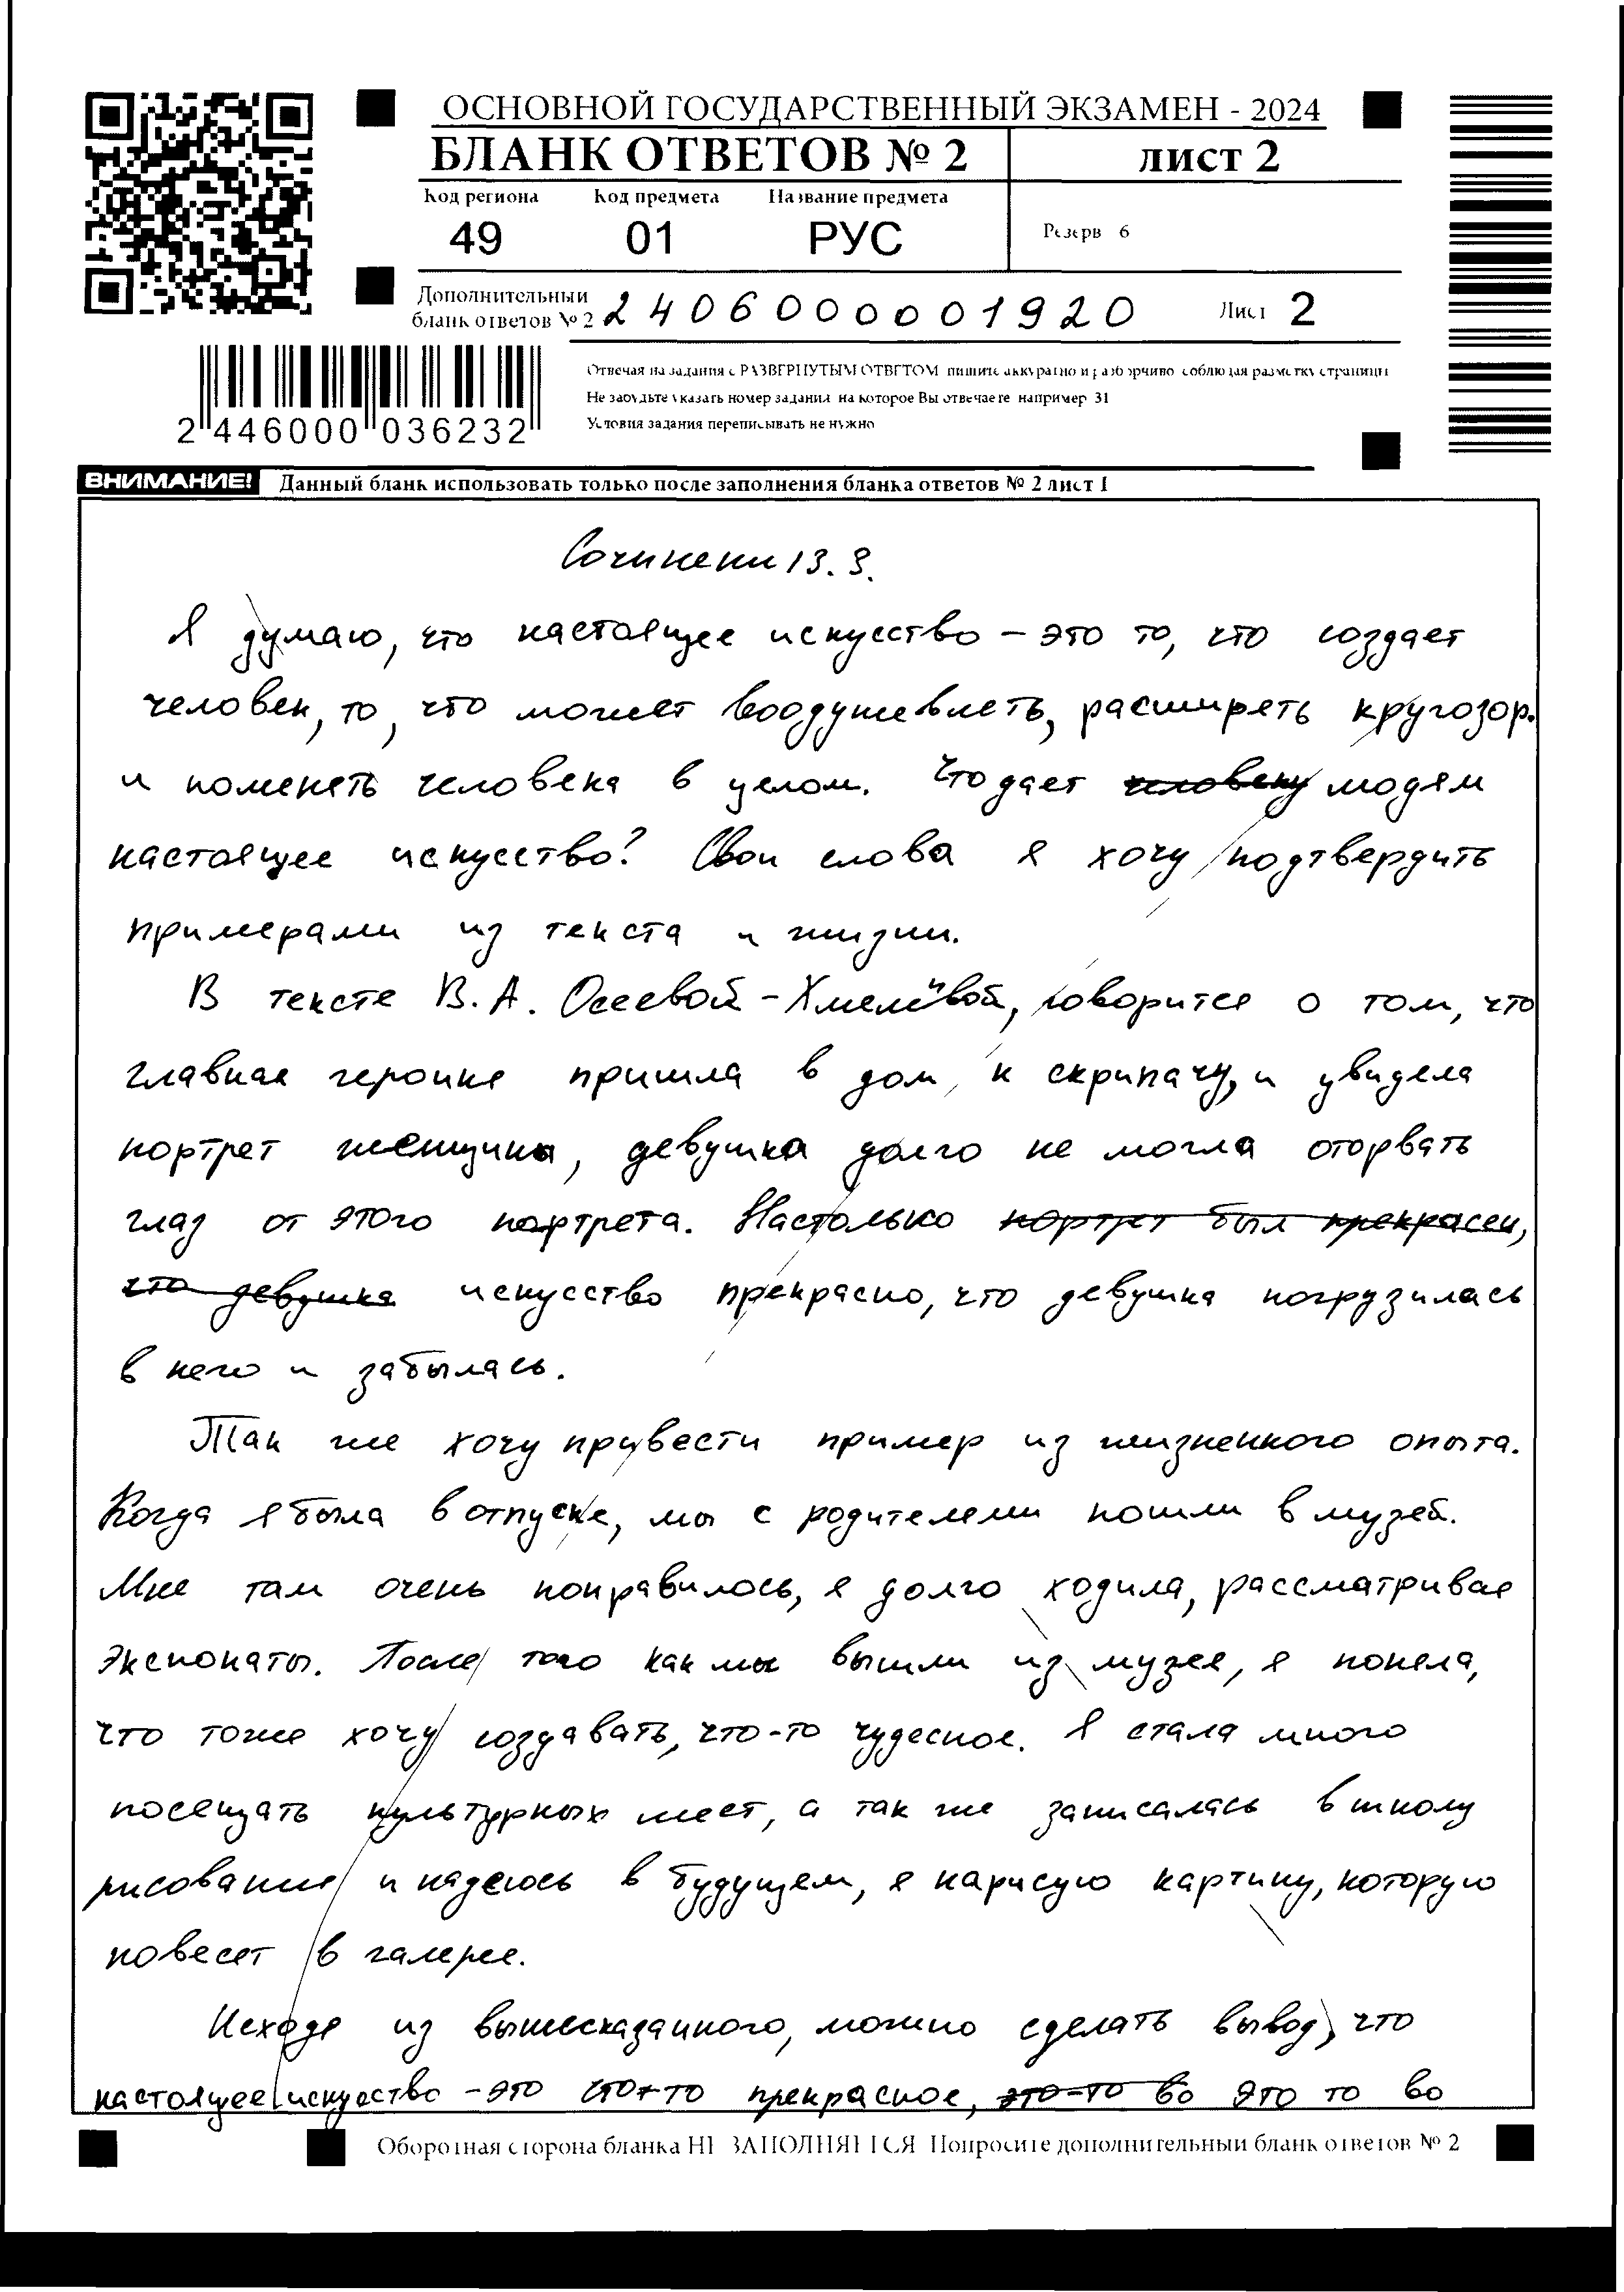 ОСНОВНОЙ ГОСУДАРСТВЕННЫЙ ЭКЗАМЕН - 2024
БЛАНК ОТВЕТОВ № 2
лист 2
Код региона Код предмета Название предмета
49 01 РУС
Резерв 6
Дополнительный бланк ответов № 2 2406000001920
Лист 2
2 446000 036232
Отвечая на задания с РАЗВЕРНУТЫМ ОТВЕТОМ пишите аккуратно и разборчиво соблюдая разметку страницы
Не забудьте указать номер задания на которое Вы отвечаете например 31
Условия задания переписывать не нужно
ВНИМАНИЕ! Данный бланк использовать только после заполнения бланка ответов № 2 лист 1
Сочинени 13.3.
Я думаю, что настоящее искусство – это то, что создает
человек, то, что может воодушевлять, расширять кругозор.
и поменять человека в целом. Что дает человеку людям
настоящее искусство? Свои слова я хочу подтвердить
примерами из текста и жизни.
В тексте В.А. Осеевой-Хмелёвой, говорится о том, что
главная героиня пришла в дом, к скрипачу, и увидела
портрет женщины, девушка долго не могла оторвать
глаз от этого портрета. Настолько портрет был прекрасен,
что девушка искусство прекрасно, что девушка погрузилась
в него и забылась.
Так же хочу привести пример из жизненного опыта.
Когда я была в отпуске, мы с родителями пошли в музей.
Мне там очень понравилось, я долго ходила, рассматривая
экспонаты. После того как мы вышли из музея, я поняла,
что тоже хочу создавать, что-то чудесное. Я стала много
посещать культурных мест, а так же записалась в школу
рисования и надеюсь в будущем, я нарисую картину, которую
повесят в галерее.
Исходя из вышесказанного, можно сделать вывод, что
настоящее искусство – это что-то прекрасное, это-то во это то во
Оборотная сторона бланка НЕ ЗАПОЛНЯЕТСЯ Попросите дополнительный бланк ответов № 2